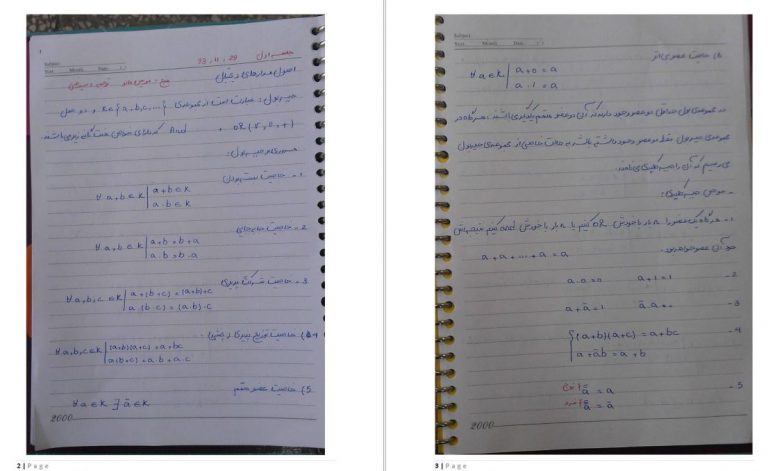 1
Subject:
Year. Month. Date. ( )
جلسه اول 93, 11, 29
اصول مدارهای دیجیتال
منبع: موریس مانو
جبر بول: عبارت است از مجموعه‌ی K∈{a,b,c,...} و دو عمل
And
OR (∨, ∪, +)
1- خاصیت بسته بودن
∀ a,b∈K | a+b∈K
a.b∈K
2- خاصیت جابه‌جایی
∀ a,b∈K | a+b=b+a
a.b=b.a
3- خاصیت شرکت پذیری
∀ a,b,c∈K | a+(b+c)=(a+b)+c
a.(b.c)=(a.b).c
4) خاصیت توزیع پذیری (پخشی)
∀ a,b,c∈K | (a+b)(a+c)=a+bc
a(b+c)=a.b+a.c
5) خاصیت عضو متمم
∀ a∈K ∃ ā∈K
2000
2 | Page
Subject:
Year. Month. Date. ( )
6) خاصیت عضو بی‌اثر
∀ a∈K | a+0=a
a.1=a
در مجموعه‌ی بول حداقل دو عضو وجود دارد که آن دو عضو متمم یکدیگر باشند. هرگاه در
مجموعه‌ی جبر بول فقط دو عضو وجود داشته باشد به حالت خاصی از مجموعه‌ی جبر بول
می‌رسیم که آن را جبر کلیدی می‌نامند.
- خواص جبر کلیدی:
1- هرگاه یک عضو را n بار با خودش OR کنیم یا n بار با خودش and کنیم نتیجه‌اش
خود آن عضو خواهد بود.
a+a+...+a=a
2- a.0=0 a+1=1
3- a+ā=1 ā.a=0
4- (a+b)(a+c)=a+bc
a+āb=a+b
5- زوج = a
فرد = ā
2000
3 | Page